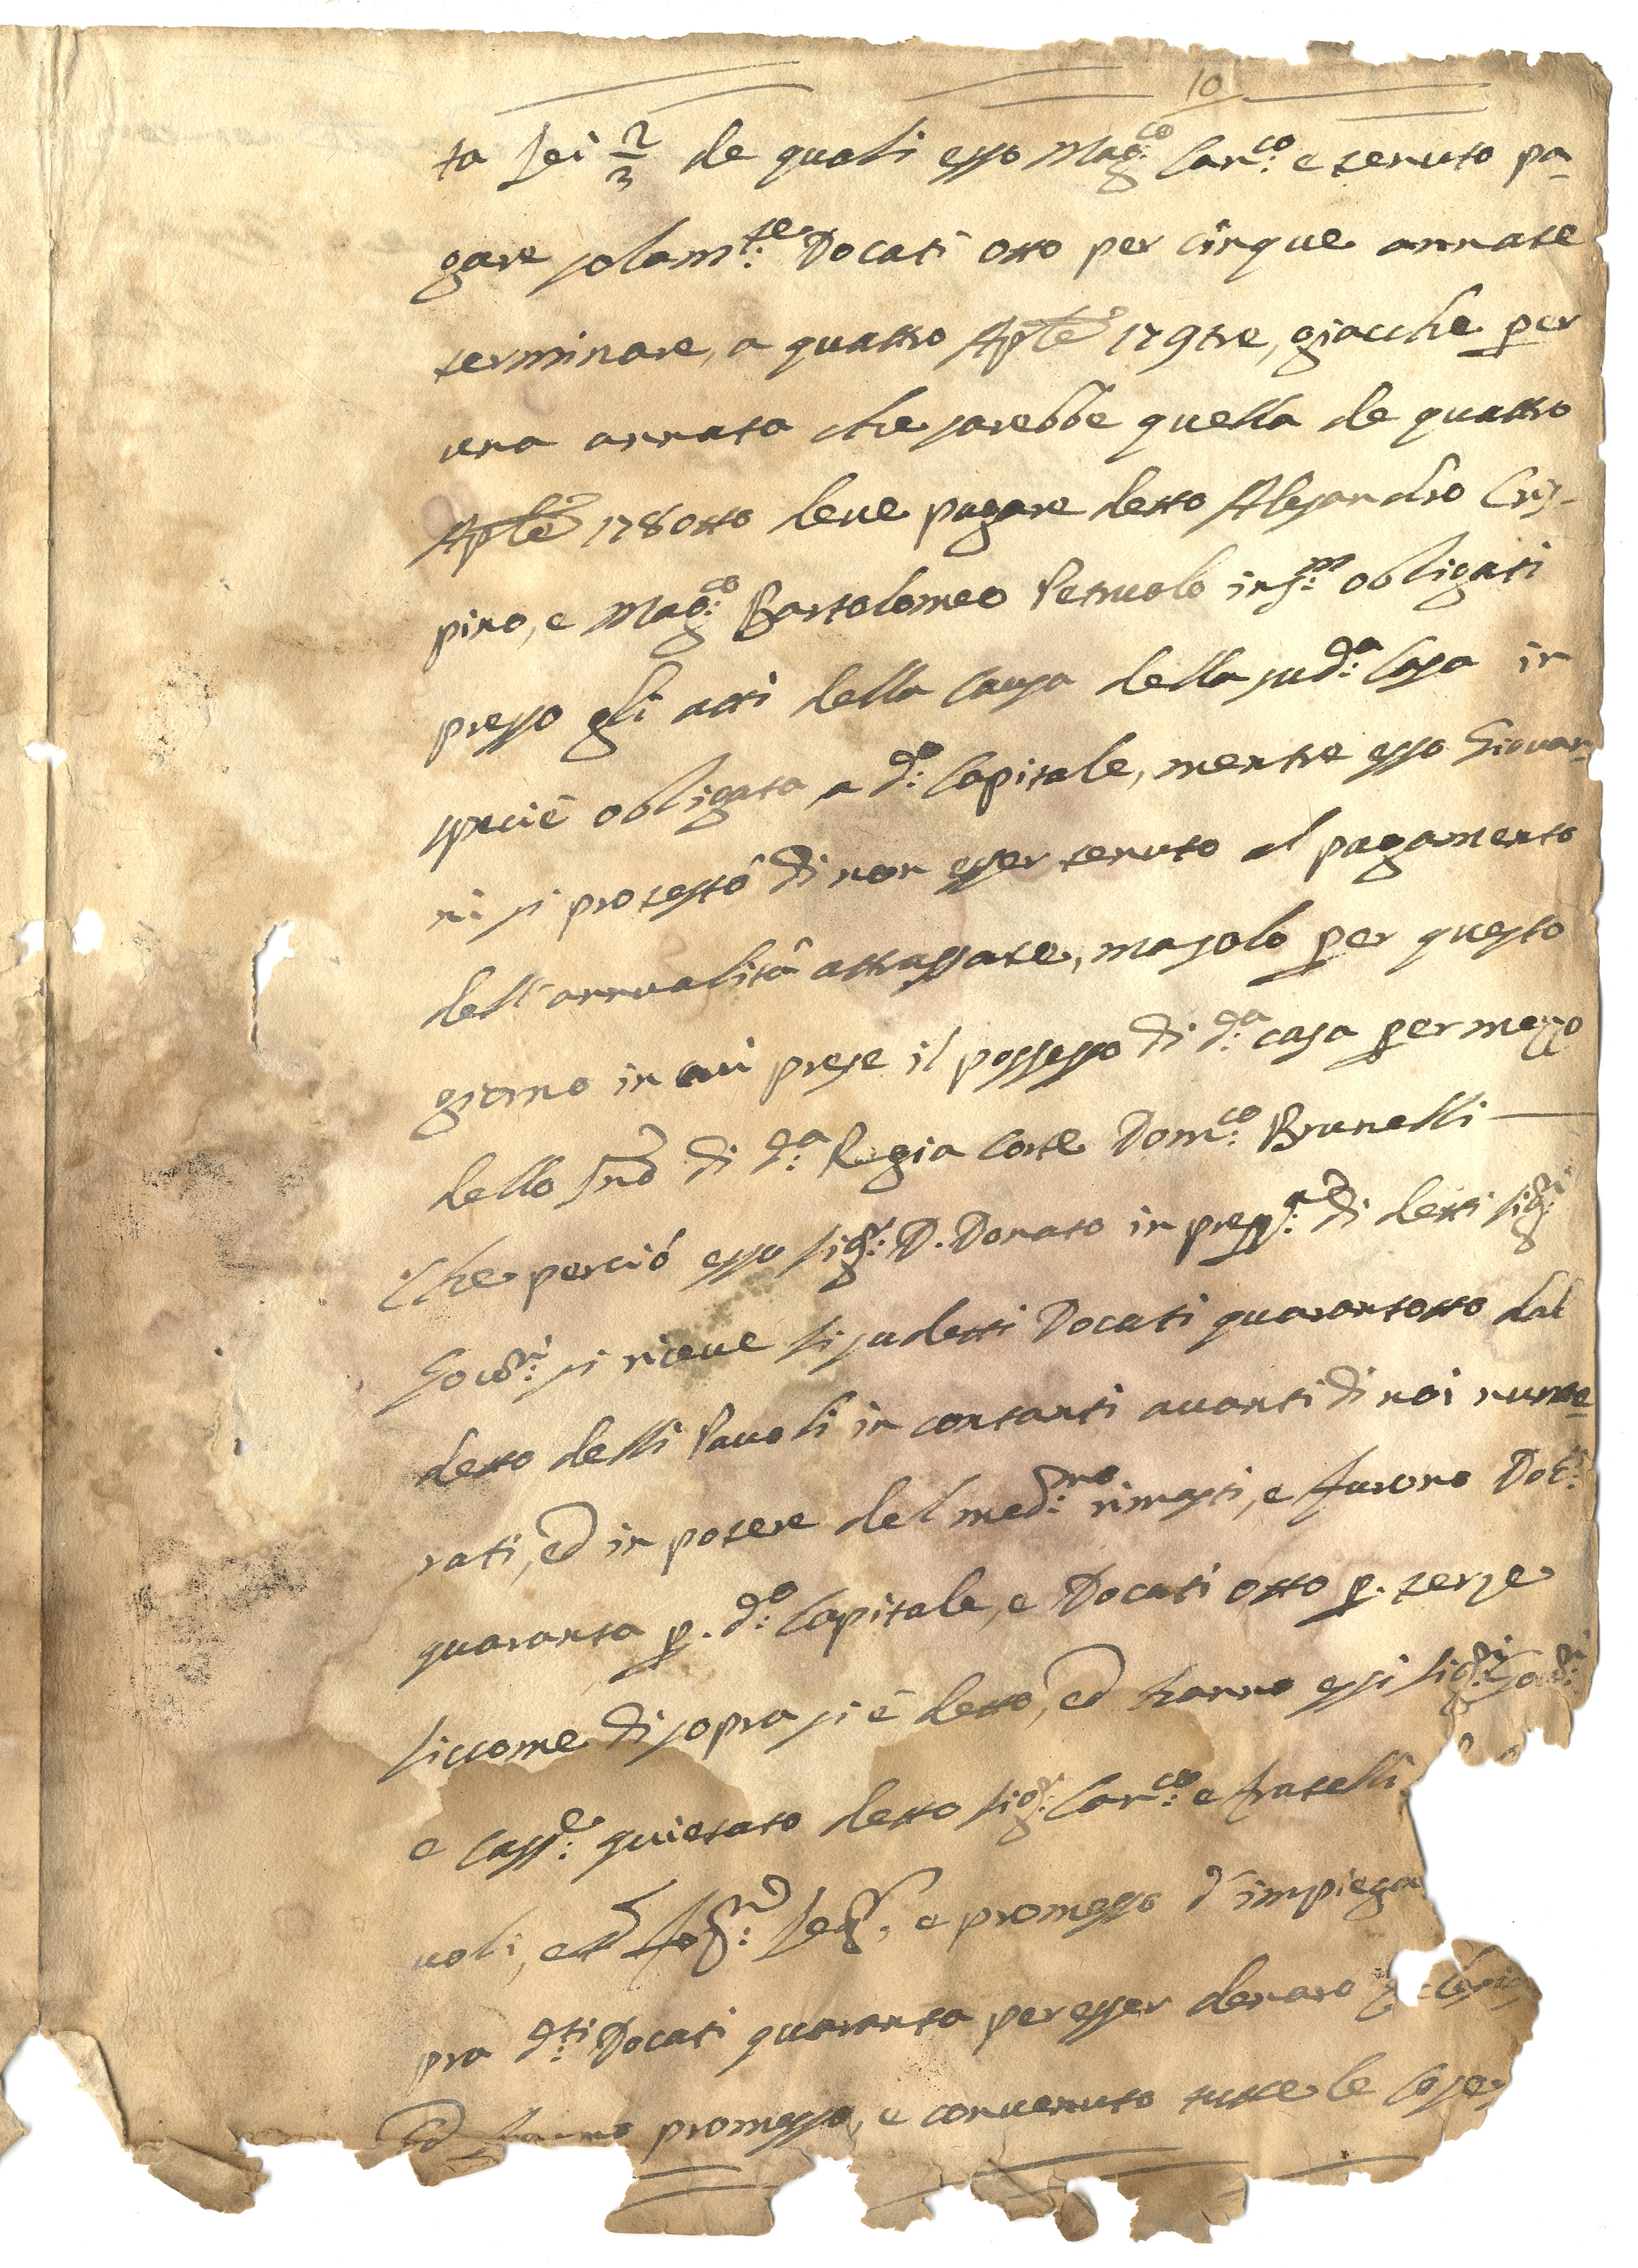 10
ta sei 2/3 de quali esso Mag:co Can:co e tenuto pa-
gare solam:te Docati otto per cinque annate
terminare, a quattro Aple 179tre, giacche per
una annata che sarebbe quella de quattro
Aple 178otto deve pagare detto Alesandro Cris-
pino, e Mag:co Bartolomeo Petruolo ins:m obligati
presso gli atti della causa della sud:a Casa in
specie obligata a d:o Capitale, mentre esso Giovan-
ni si protestò di non esser tenuto al pagamento
dell'annualità attrassate, ma solo per questo
giorno in cui prese il possesso di d:a casa per mezzo
dello Sno di d:a Regia Corte Dom:co Brunelli
Che perciò esso Sig:r D. Donato in pres:a di detti Sig:i
si riceve li sudetti Docati quarantotto dal
detto delli Pauoli in contanti avanti di noi nume-
rati, ed in potere del med:mo rimasti, e furono Dot:i
quaranta p. d:o Capitale, e Docati otto p. terze
siccome di sopra si è detto, ed hanno essi Sig:ri
e Cass:e quietato detto Sig:r Can:co e fratelli
uoli, e promesso d'impiega
pra d:ti Docati quaranta per esser denaro
Ed hanno promesso, e convenuto tutte le cose